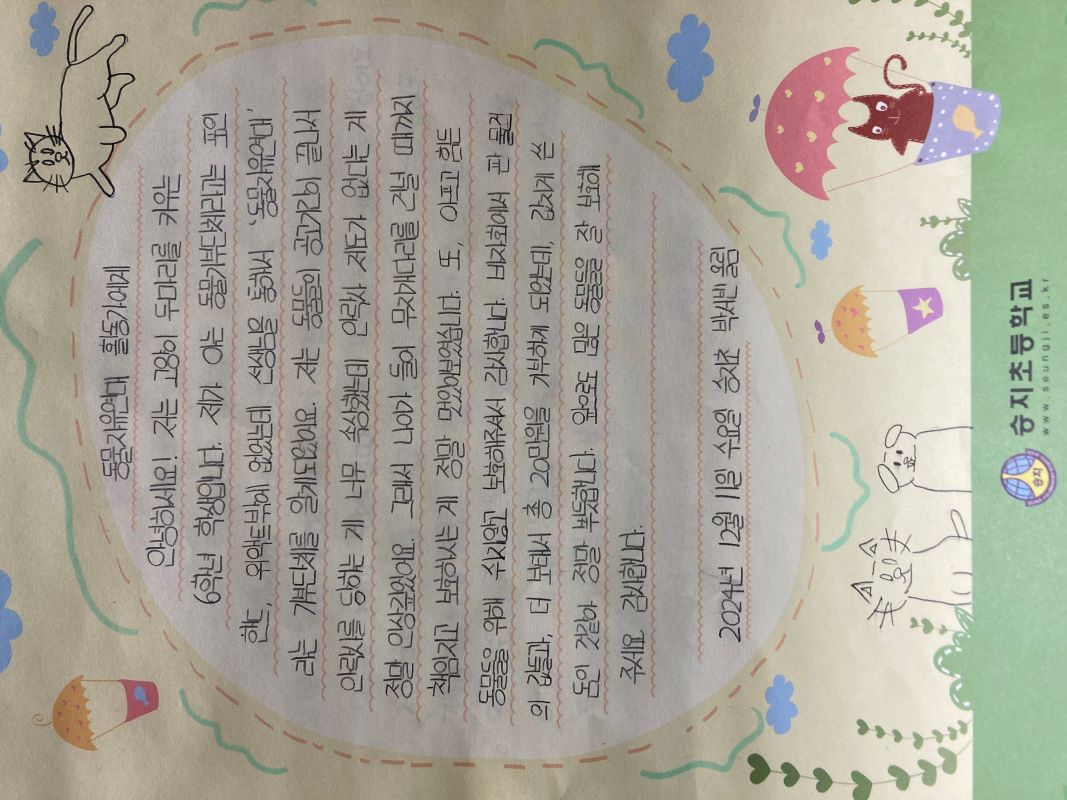 동물자유연대 활동가에게
안녕하세요! 저는 고양이 두마리를 키우는
6학년 학생입니다. 제가 아는 동물기부단체라고는 포인
핸드, 위액트밖에 없었는데 선생님을 통해서 '동물자유연대'
라는 기부단체를 알게되었어요. 저는 동물들의 공고기간이 끝나서
안락사를 당하는 게 너무 속상했는데 안락사 제도가 없다는 게
정말 인상깊었어요. 그래서 나이가 들어 무지개다리를 건널 때까지
책임지고 보호하시는 게 정말 멋있어보였습니다. 또, 아프고 힘든
동물들을 위해 쉬지않고 보호해주셔서 감사합니다. 바자회에서 판 물건
의 값들과, 더 보태서 총 20만원을 기부하게 되었는데, 값지게 쓴
돈인 것같아 정말 뿌듯합니다. 앞으로도 많은 동물들을 잘 보호해
주세요. 감사합니다.
2024년 12월 11일 수요일 승지초 박서빈 올림
승지초등학교
www.seungji.es.kr
승지